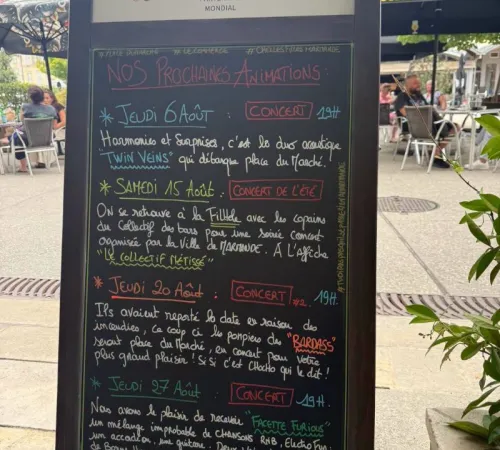 MONDIAL
NOS PROCHAINES ANIMATIONS :
* JEUDI 6 AOÛT : CONCERT 19H
Harmonies et Surprises, c'est le duo acoustique
"TWIN VEINS" qui débarque place du Marché.
* SAMEDI 15 AOÛT : CONCERT DE L'ÉTÉ
ON se retrouve à la Filhole avec les copains
du Collectif des bars pour une soirée concert
organisée par la Ville de MARMANDE. À L'affiche
"LE COLLECTIF MÉTISSÉ"
* JEUDI 20 AOÛT : CONCERT #2 19H
Ils avaient reporté la date en raison des
incendies, ce coup ci les pompiers des "BARDASS"
seront place du Marché, en concert pour votre
plus grand plaisir ! Si si c'est CHACHO qui le dit !
* JEUDI 27 AOÛT : CONCERT 19H.
Nous avons le plaisir de recevoir "FACETTE FURIOUS"
un mélange improbable de CHANSONS RNB, ELECTRO FUN
un accordéon, une guitare.